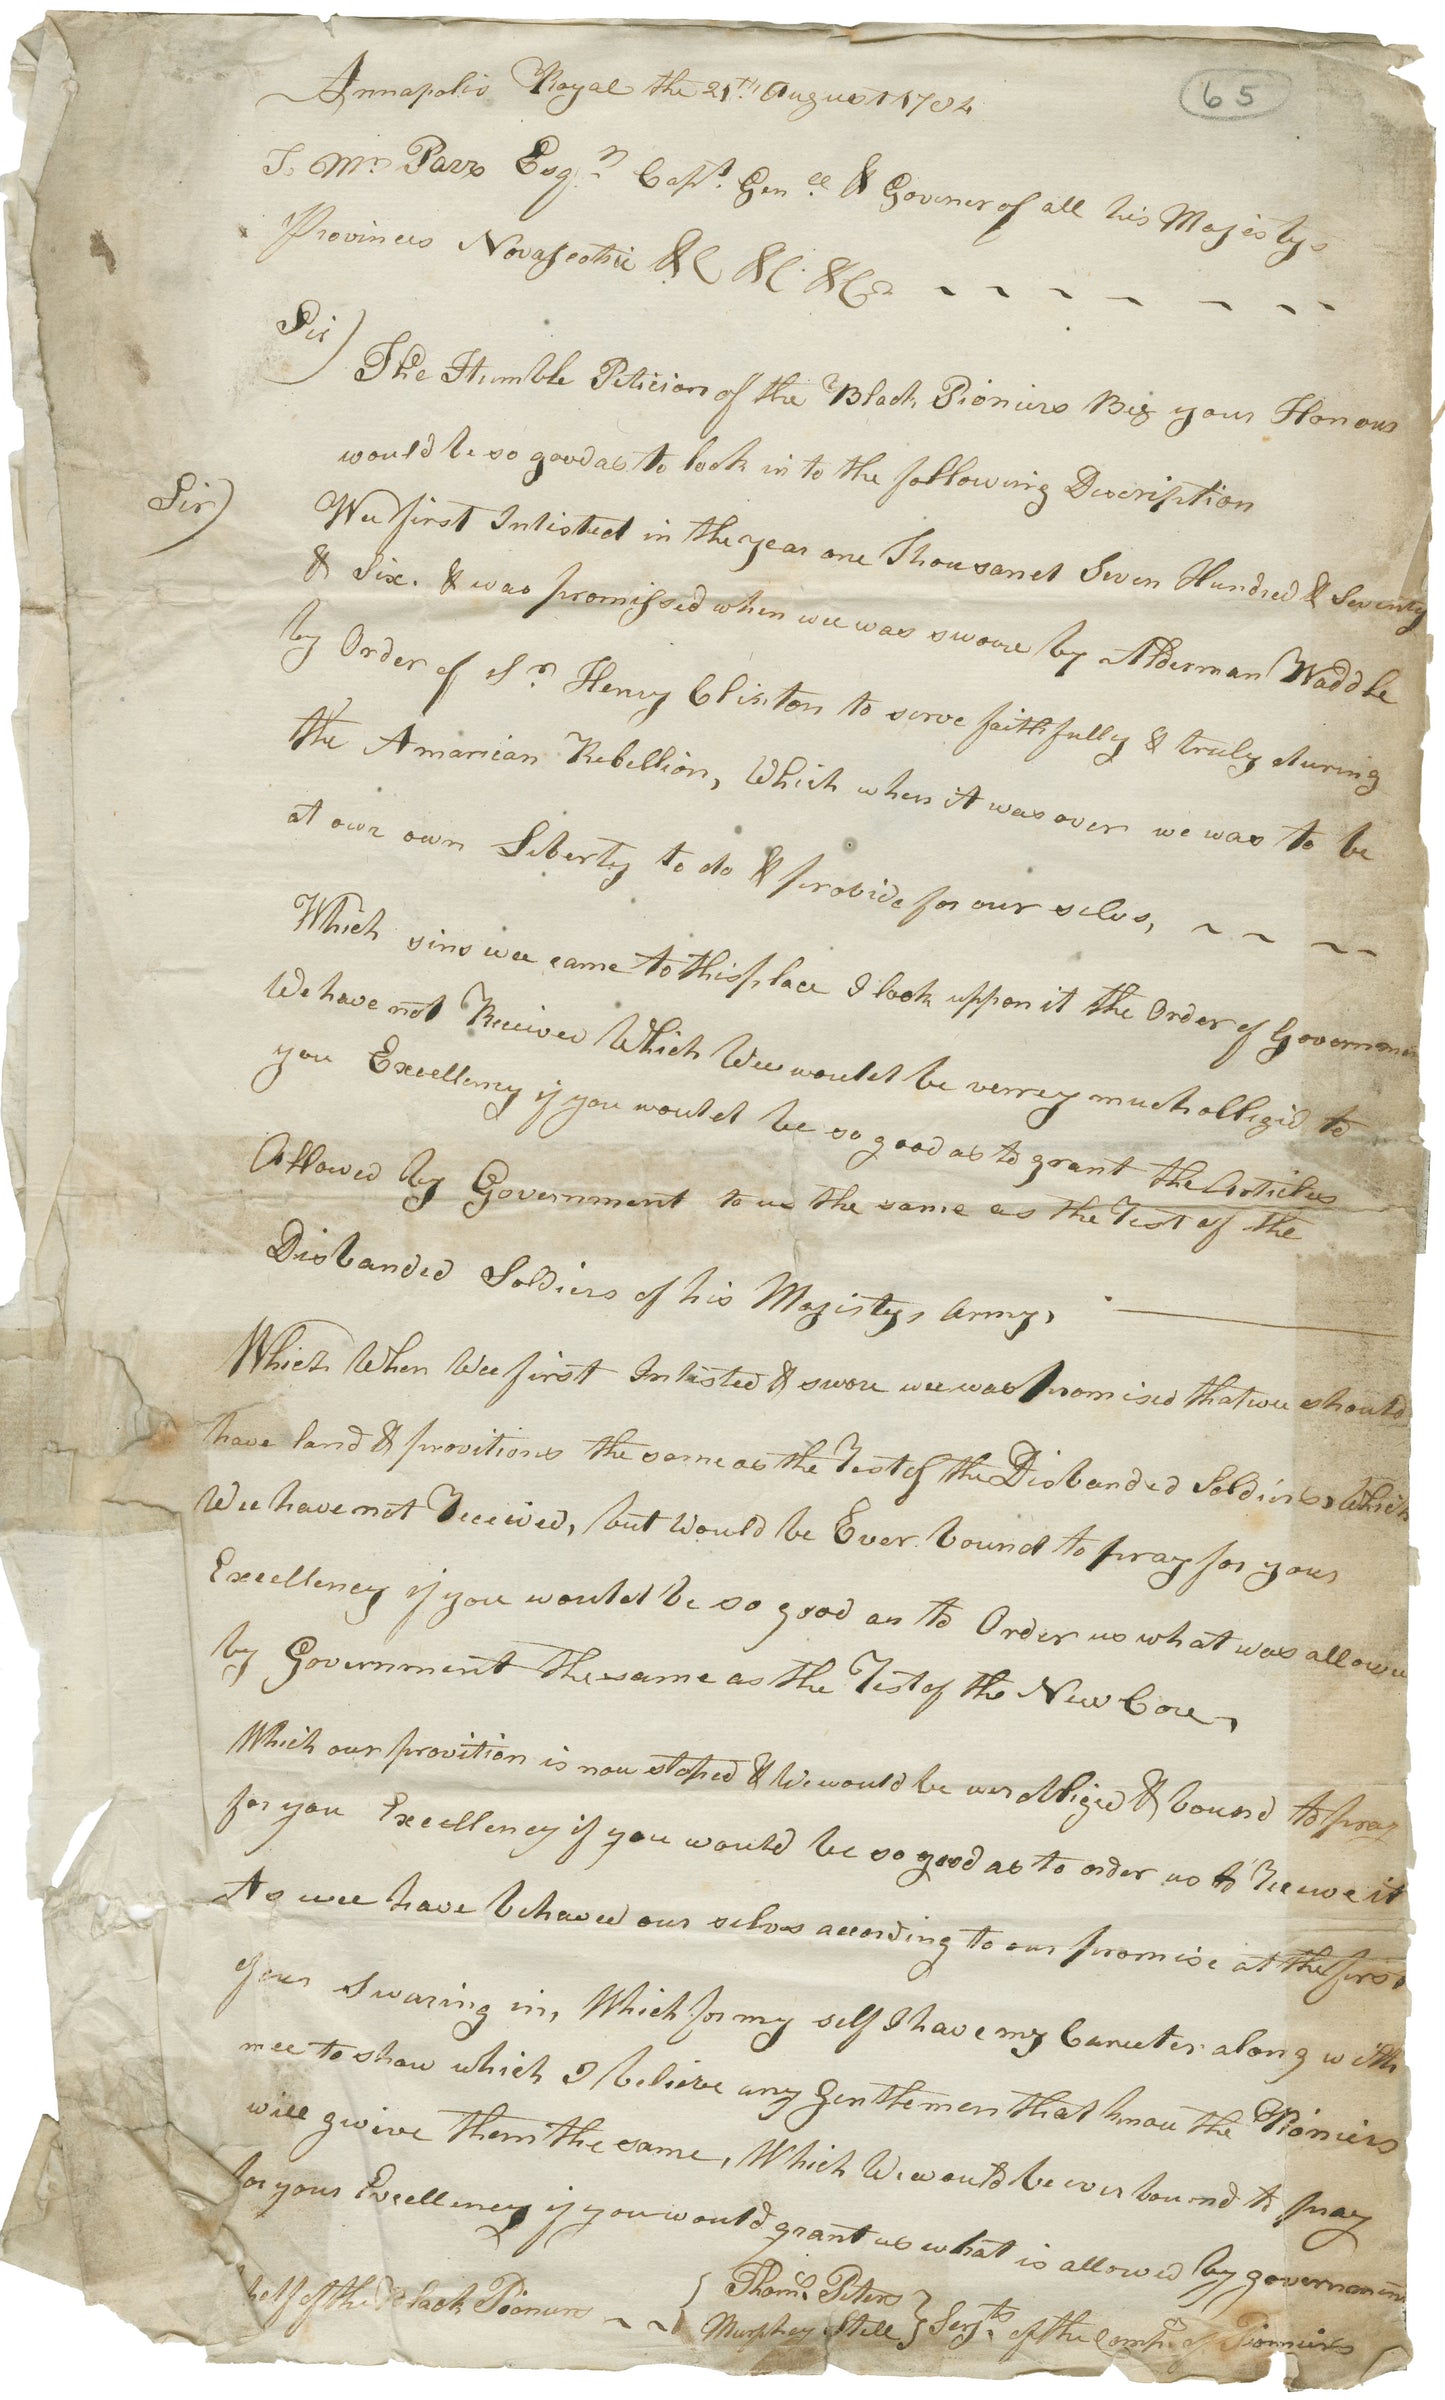 65
Annapolis Royal the 21th August 1784
To Mr Parrs Esqr Capt Genll & Govener of all his Majestys
Provinces Novascothie &C &C &Ca
Sir)
The Humble Peticion of the Black Pioniers Beg your Honour
would be so good as to look in to the following Discription
Sir)
Wee first Inlisted in the year one Thousand Seven Hundred & Seventy
& Six. & was promissed when wee was swore by Alderman Waddle
by Order of Sr Henry Clinton to serve faithfully & truly during
the Amarican Rebellion, Which when it was over we was to be
at owr own Liberty to do & provide for our selvs,
Which sins wee came to this place I look uppon it the Order of Governmen
We have not Receivd Which Wee would be verrey much obligid to
you Excellency if you would be so good as to grant the Articles
Allowed by Government to us the same as the Rest of the
Disbanded Soldiers of his Majestys Army,
Which When Wee first Inlisted & swore wee was promised that wee should
have land & provitions the same as the Rest of the Disbanded Soldiers, Which
Wee have not Receivid, but Would be Ever bound to pray for your
Excellency if you would be so good as to Order us what was allowed
by Government the same as the Rest of the New Core,
Which our provition is now stoped & We would be ever obliged & bound to pray
for you Excellency if you would be so good as to order us to Receive it
As wee have behaved our selvs according to our promise at the first
of our Swaring in, Which for my self I have my Careeter along with
mee to show which I believe any Gentlemen that know the Pioniers
will gwive them the same, Which We would be ever bound to pray
for your Excellency if you would grant us what is allowed by government
half of the Black Pioniers { Thoms Peters
Murphey Still } Serjts of the Compy of Pionniers